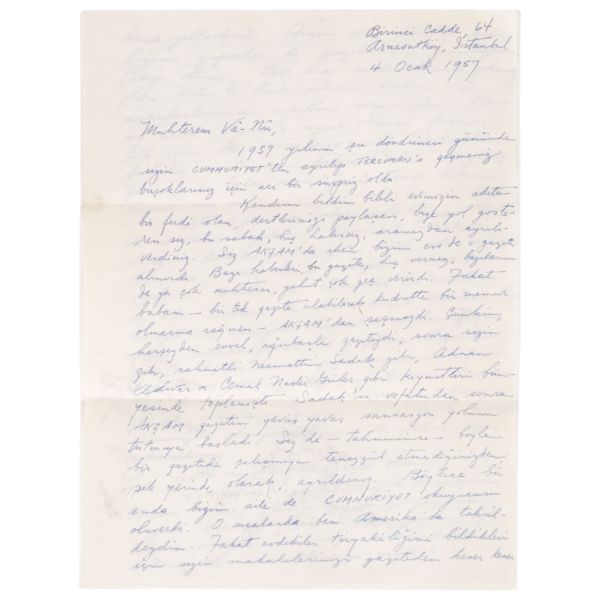 Birinci Cadde, 64
Arnavutköy, İstanbul
4 Ocak 1957
Muhterem Vâ-Nû,
1957 yılının şu dördüncü gününde
sizin CUMHURİYET'ten ayrılıp TERCÜMAN'a geçmeniz
birçoklarımız için acı bir sürpriz oldu.
Kendimi bildim bileli evimizin adeta
bir ferdi olan, dertlerimizi paylaşan, bize yol göste-
ren siz, bu sabah, hiç habersiz, aramızdan ayrılı-
verdiniz. Siz AKŞAM'da iken bizim eve de o gazete
alınırdı. Bazı haberleri, bu gazete, hiç vermez, bazılarını
da ya çok muhtasar, yahut çok geç verirdi. Fakat
babam – bir tek gazete alabilecek kudrette bir memur
olmasına rağmen – AKŞAM'dan şaşmazdı. Çünkü,
herşeyden evvel, ağırbaşlı gazeteydi; sonra sizin
gibi, rahmetli Necmettin Sadak gibi, Adnan
Adıvar ve Cemal Nadir Güler gibi kıymetleri bün-
yesinde toplamıştı. Sadak'ın vefatından sonra
AKŞAM gazetesi yavaş yavaş sansasyon yolunu
tutmaya başladı. Siz de – tahminimce – böyle
bir gazetede çalışmaya tenezzül etmediğinizden
pek yerinde olarak, ayrıldınız. Böylece bir
anda bizim aile de CUMHURİYET okuyucusu
oluverdi. O sıralarda ben Amerika'da tahsil-
deydim. Fakat evdekiler tiryakiliğimi bildikleri
için sizin makalelerinizi gazeteden keser keser